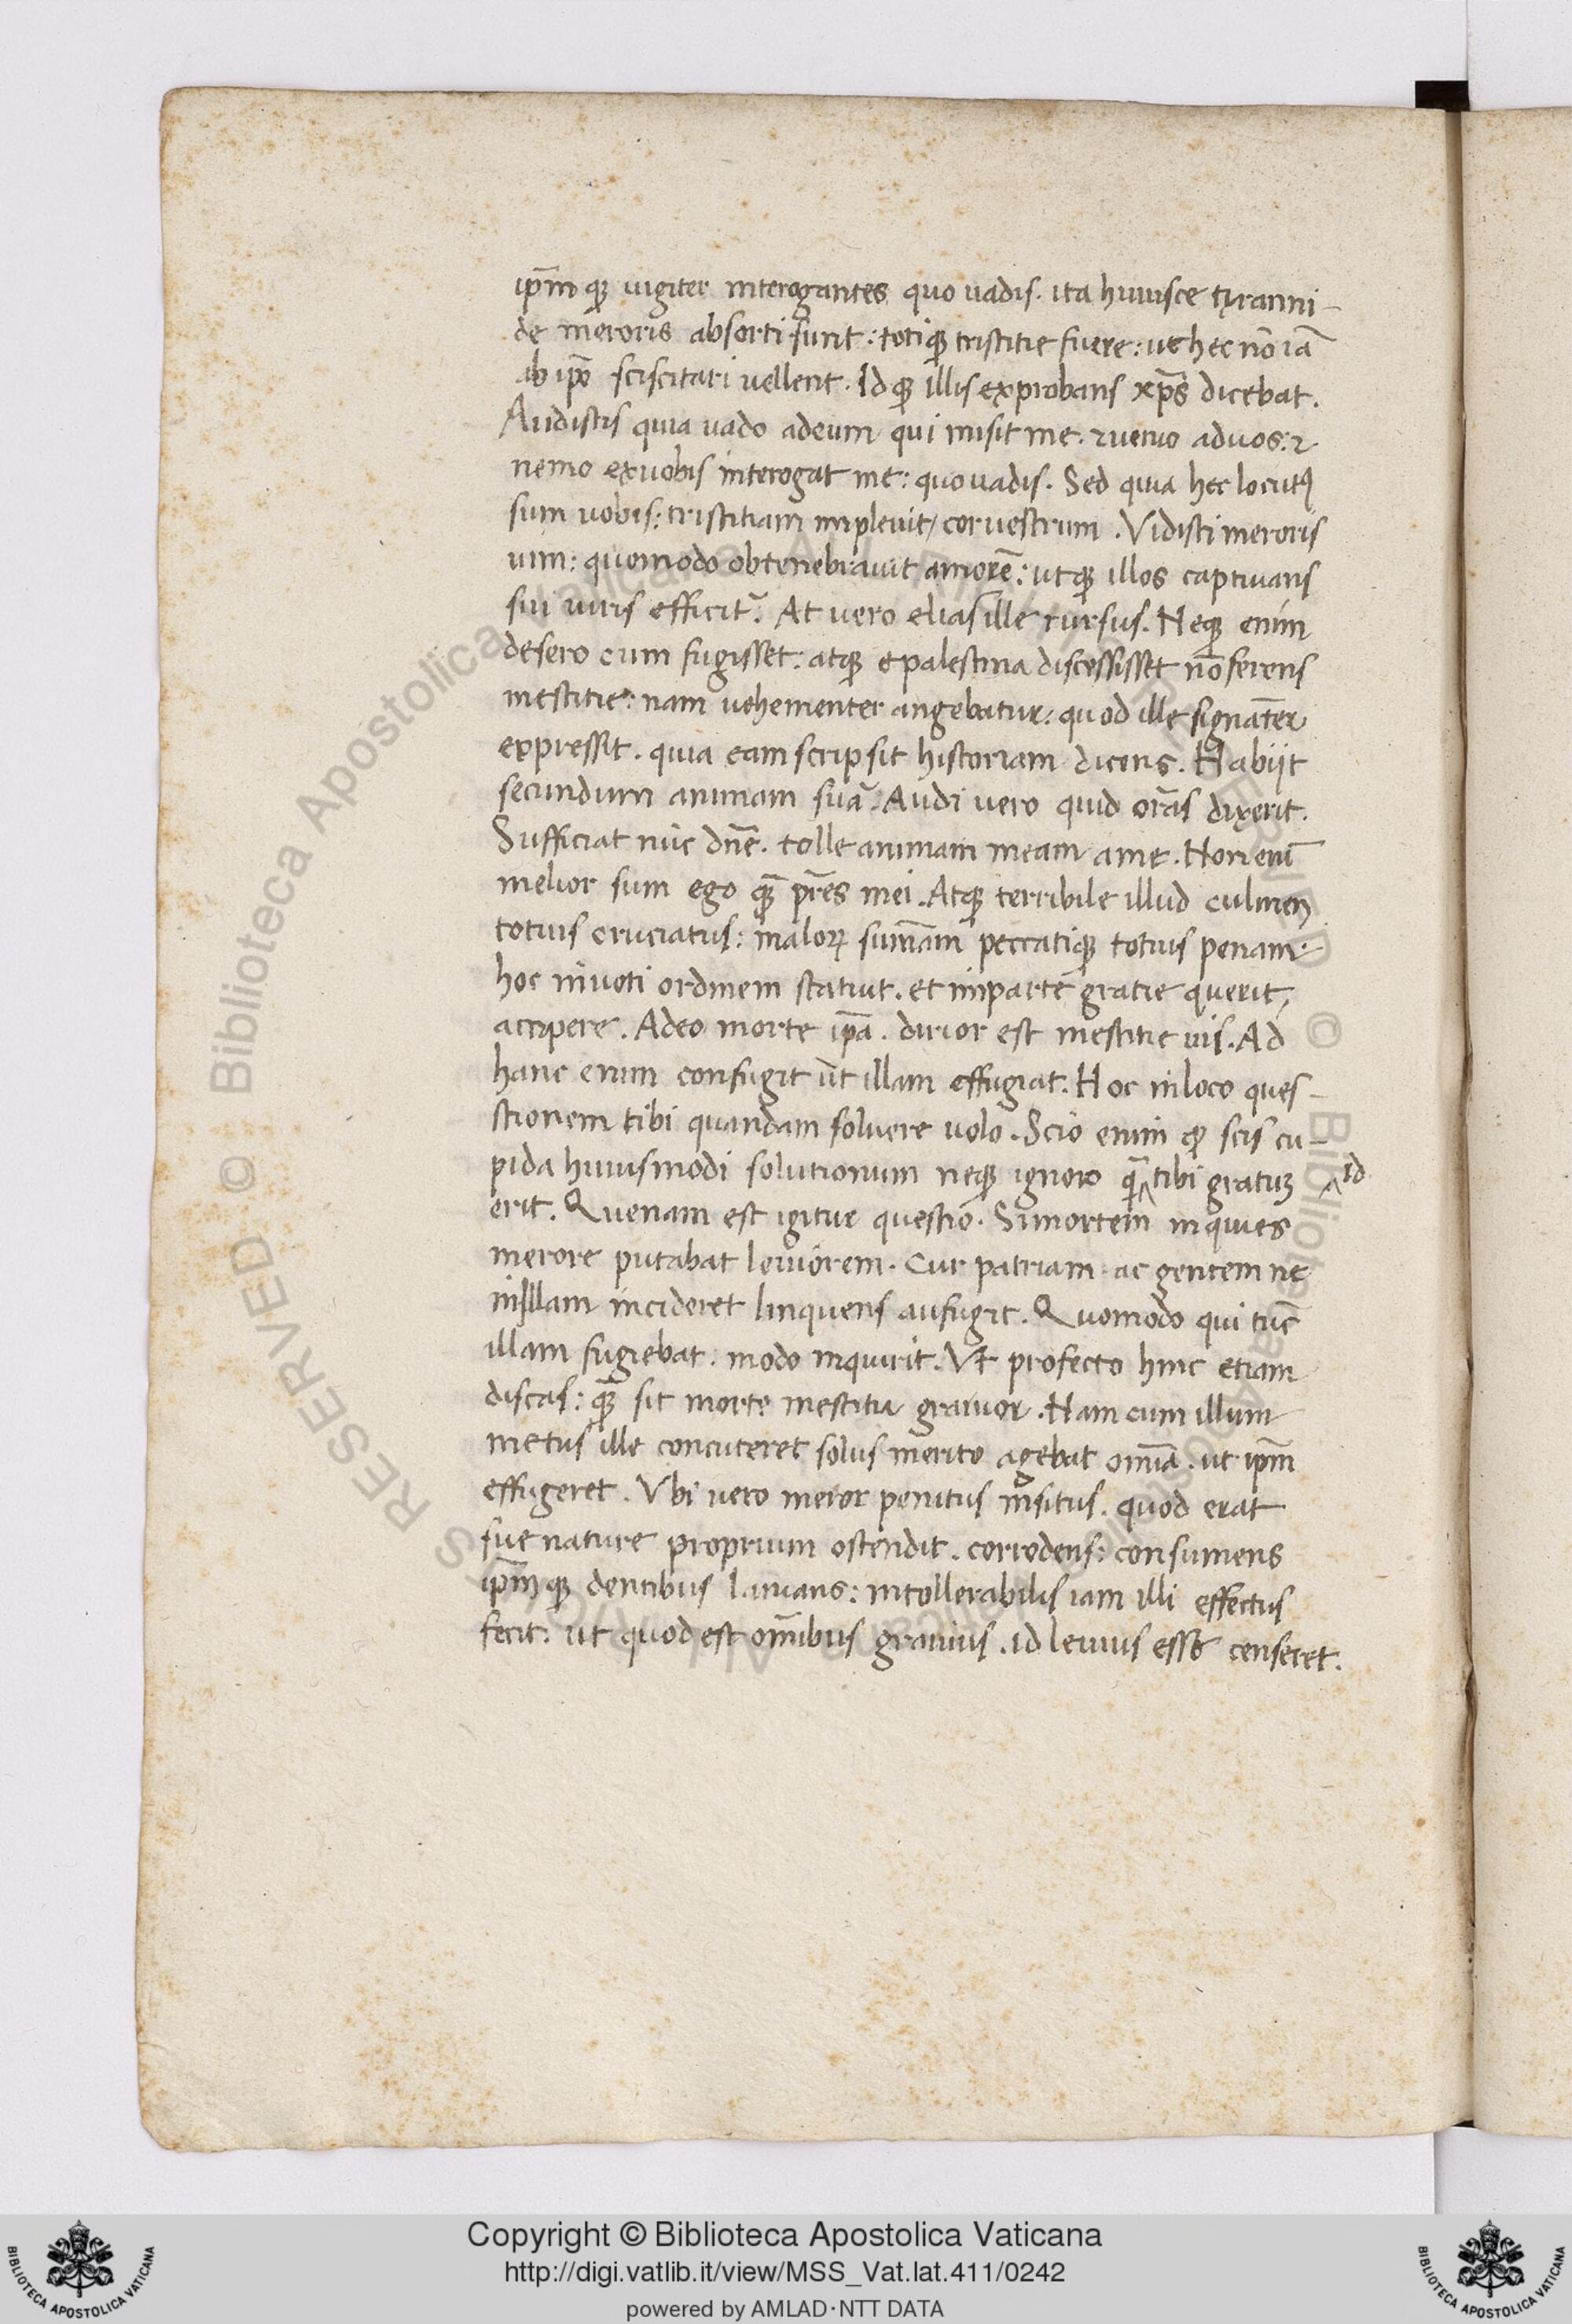 ip̄m qꝫ iugiter interogantes quo uadis. ita huiusce tyranni-
de meroris absorti sunt: totiqꝫ tristitie fuere: ut hec nō iā
ab ip̄o sciscitari uellent. Id qꝫ illis exprobans xp̄s dicebat.
Audistis quia uado adeum qui misit me. ⁊ uenio aduos: ⁊
nemo exuobis interogat me: quouadis. Sed quia hec locutꝰ
sum uobis: tristitiam impleuit cor uestrum. Vidisti meroris
uim: quomodo obtenebrauit amorē: utqꝫ illos captiuans
sui iuris efficit᷑. At uero elias ille rursus. Neqꝫ enim
desero cum fugisset: atqꝫ epalestina discessisset nō ferens
mestitie: nam uehementer angebatur: quod ille signāter
expressit. quia eam scripsit historiam dicens. Habiit
secundum animam suā. Audi uero quid orās dixerit.
Sufficiat nūc dn̄e. tolle animam meam ame. Non enī
melior sum ego qꝫ̄ pr̄es mei. Atqꝫ terribile illud culmen
totius cruciatus: maloꝝ sum̄am peccatiqꝫ totius penam
hoc inuoti ordinem statuit. et inpartē gratie querit
accipere. Adeo morte ip̄a. dirior est mestitie uis. Ad
hanc enim confugit ut illam effugiat. Hoc inloco ques-
stionem tibi quandam soluere uolo. Scio enim qꝫ scis cu-
pida huiusmodi solutionum neqꝫ ignoro qꝫ̄ ‸ tibi gratuꝫ ‸ id
erit. Quenam est igitur questio. Simortem inquies
merore putabat leuiorem. Cur patriam ac gentem ne
inillam incideret linquens aufugit. Quomodo qui tūc
illam fugiebat. modo inquirit. Vt profecto hinc etiam
discas: qꝫ̄ sit morte mestitia grauior. Nam cum illum
metus ille concuteret solus merito agebat om̄ia. ut ip̄m
effugeret. Vbi uero meror penitus insitus. quod erat
sue nature proprium ostendit. corrodens: consumens
ip̄mqꝫ dentibus lanians: intollerabilis iam illi effectus
fecit: ut quod est om̄ibus grauius. id leuius esse censeret.
© Biblioteca Apostolica Vaticana ALL RIGHTS RESERVED
Copyright © Biblioteca Apostolica Vaticana
http://digi.vatlib.it/view/MSS_Vat.lat.411/0242
powered by AMLAD·NTT DATA
BIBLIOTECA APOSTOLICA VATICANA
BIBLIOTECA APOSTOLICA VATICANA